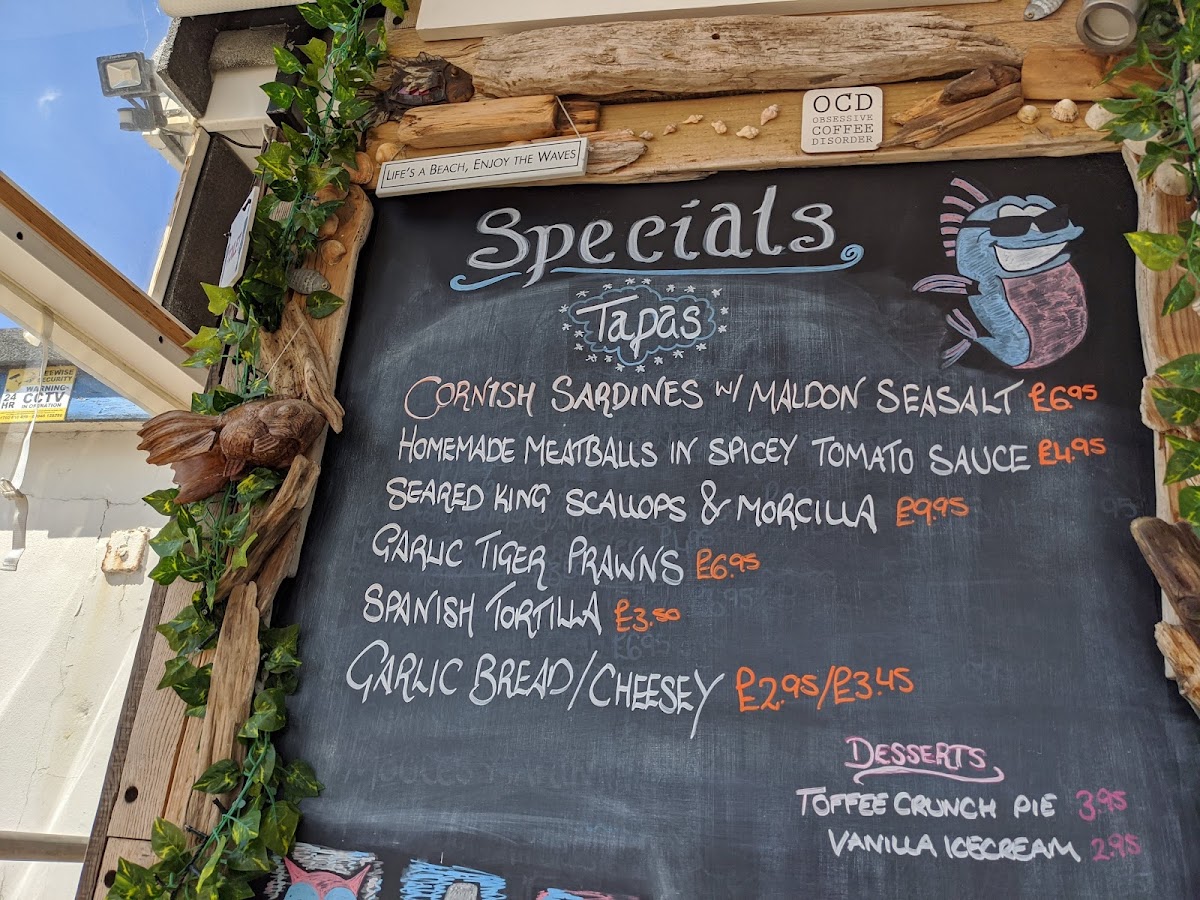 OCD
OBSESSIVE
COFFEE
DISORDER
LIFE'S A BEACH, ENJOY THE WAVES
Specials
Tapas
CORNISH SARDINES W/ MALDON SEASALT £6.95
HOMEMADE MEATBALLS IN SPICEY TOMATO SAUCE £4.95
SEARED KING SCALLOPS & MORCILLA £9.95
GARLIC TIGER PRAWNS £6.95
SPANISH TORTILLA £3.50
GARLIC BREAD/CHEESEY £2.95/£3.45
DESSERTS
TOFFEE CRUNCH PIE 3.95
VANILLA ICECREAM 2.95
SECURITY
WARNING
24 HR CCTV
IN OPERATION